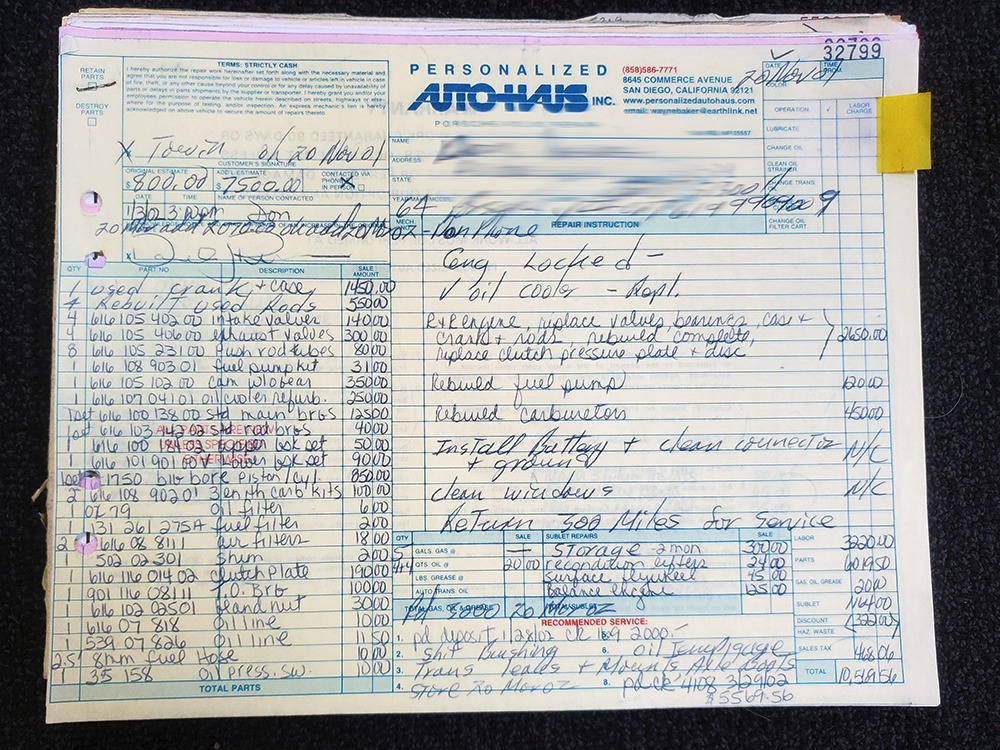 32799
RETAIN PARTS
DESTROY PARTS
TERMS: STRICTLY CASH
I hereby authorize the repair work hereinafter set forth along with the necessary material and
agree that you are not responsible for loss or damage to vehicle or articles left in vehicle in case
of fire, theft, or any other cause beyond your control or for any delay caused by unavailability of
parts or delays in parts shipments by the supplier or transporter. I hereby grant you and/or your
employees permission to operate the vehicle herein described on streets, highways or else-
where for the purpose of testing, and/or inspection. An express mechanic's lien is hereby
acknowledged on above vehicle to secure the amount of repairs thereto.
PERSONALIZED
AUTO-HAUS INC.
(858)586-7771
8645 COMMERCE AVENUE
SAN DIEGO, CALIFORNIA 92121
www.personalizedautohaus.com
email: waynebaker@earthlink.net
DATE
20 Nov 01
OPERATION
LABOR CHARGE
LUBRICATE
CHANGE OIL
CLEAN OIL STRAINER
CHANGE TRANS.
CHANGE OIL FILTER CART.
X Tow in on 20 Nov 01
CUSTOMER'S SIGNATURE
ORIGINAL ESTIMATE
$ 800.00
ADD'L ESTIMATE
$ 7500.00
CONTACTED VIA
PHONE
IN PERSON
NAME
ADDRESS
DATE
TIME
NAME OF PERSON CONTACTED
Don
64
MECH.
REPAIR INSTRUCTION
QTY
PART NO
DESCRIPTION
SALE AMOUNT
1 used crank + case 1450.00
4 Rebuilt used Rods 550.00
4 616 105 402 00 intake valves 140.00
4 616 105 406 00 exhaust valves 300.00
8 616 105 231 00 push rod tubes 80.00
1 616 108 903 01 fuel pump kit 31.00
1 616 105 102 00 cam w/o gear 350.00
1 616 107 041 01 oil cooler refurb. 250.00
1 set 616 100 138 00 std main brgs 125.00
1 set 616 103 142 02 std rod brgs 40.00
50.00
90.00
1 set 1750 big bore piston/cyl. 850.00
2 616 108 902 01 Zenith carb kits 100.00
1 OF 79 oil filter 6.00
1 131 261 275A fuel filter 2.00
2 616 08 8111 air filters 18.00
1 502 02 301 shim 2.00
1 616 116 014 02 clutch plate 190.00
1 901 116 08111 T.O. Brg 100.00
1 616 102 02501 gland nut 30.00
1 616 07 818 oil line 10.00
1 539 07 826 oil line 11.50
2.5' 8mm fuel Hose 10.00
1 35 158 oil press. sw. 10.00
TOTAL PARTS
Eng Locked -
✓ oil cooler - Repl.
R+R engine, replace valves, bearings, case +
crank + rods, rebuild complete,
replace clutch pressure plate + disc
2650.00
Rebuild fuel pump 120.00
Rebuild carburetors 450.00
Install Battery + clean connector
+ ground N/C
clean windows N/C
Return 300 Miles for Service
QTY
SALE
SUBLET REPAIRS
SALE
5 GALS. GAS @ —
4+4 QTS. OIL @ 20.00
LBS. GREASE @
AUTO TRANS. OIL
TOTAL GAS, OIL & GREASE
Storage - 2 mon 300.00
recondition lifters 24.00
surface flywheel 45.00
balance engine 125.00
TOTAL SUBLET
LABOR 3220.00
PARTS 6019.50
GAS, OIL, GREASE 20.00
SUBLET
DISCOUNT (322.00)
HAZ. WASTE
SALES TAX 468.06
TOTAL 10,569.56
RECOMMENDED SERVICE:
1. pd deposit 1/28/02 ck 169 2000.-
2. Shift Bushing
6. oil temp gauge
3. Trans leaks + Mounts Axle Boots
4.
8. pd ck 4108 3/29/02
$5569.56